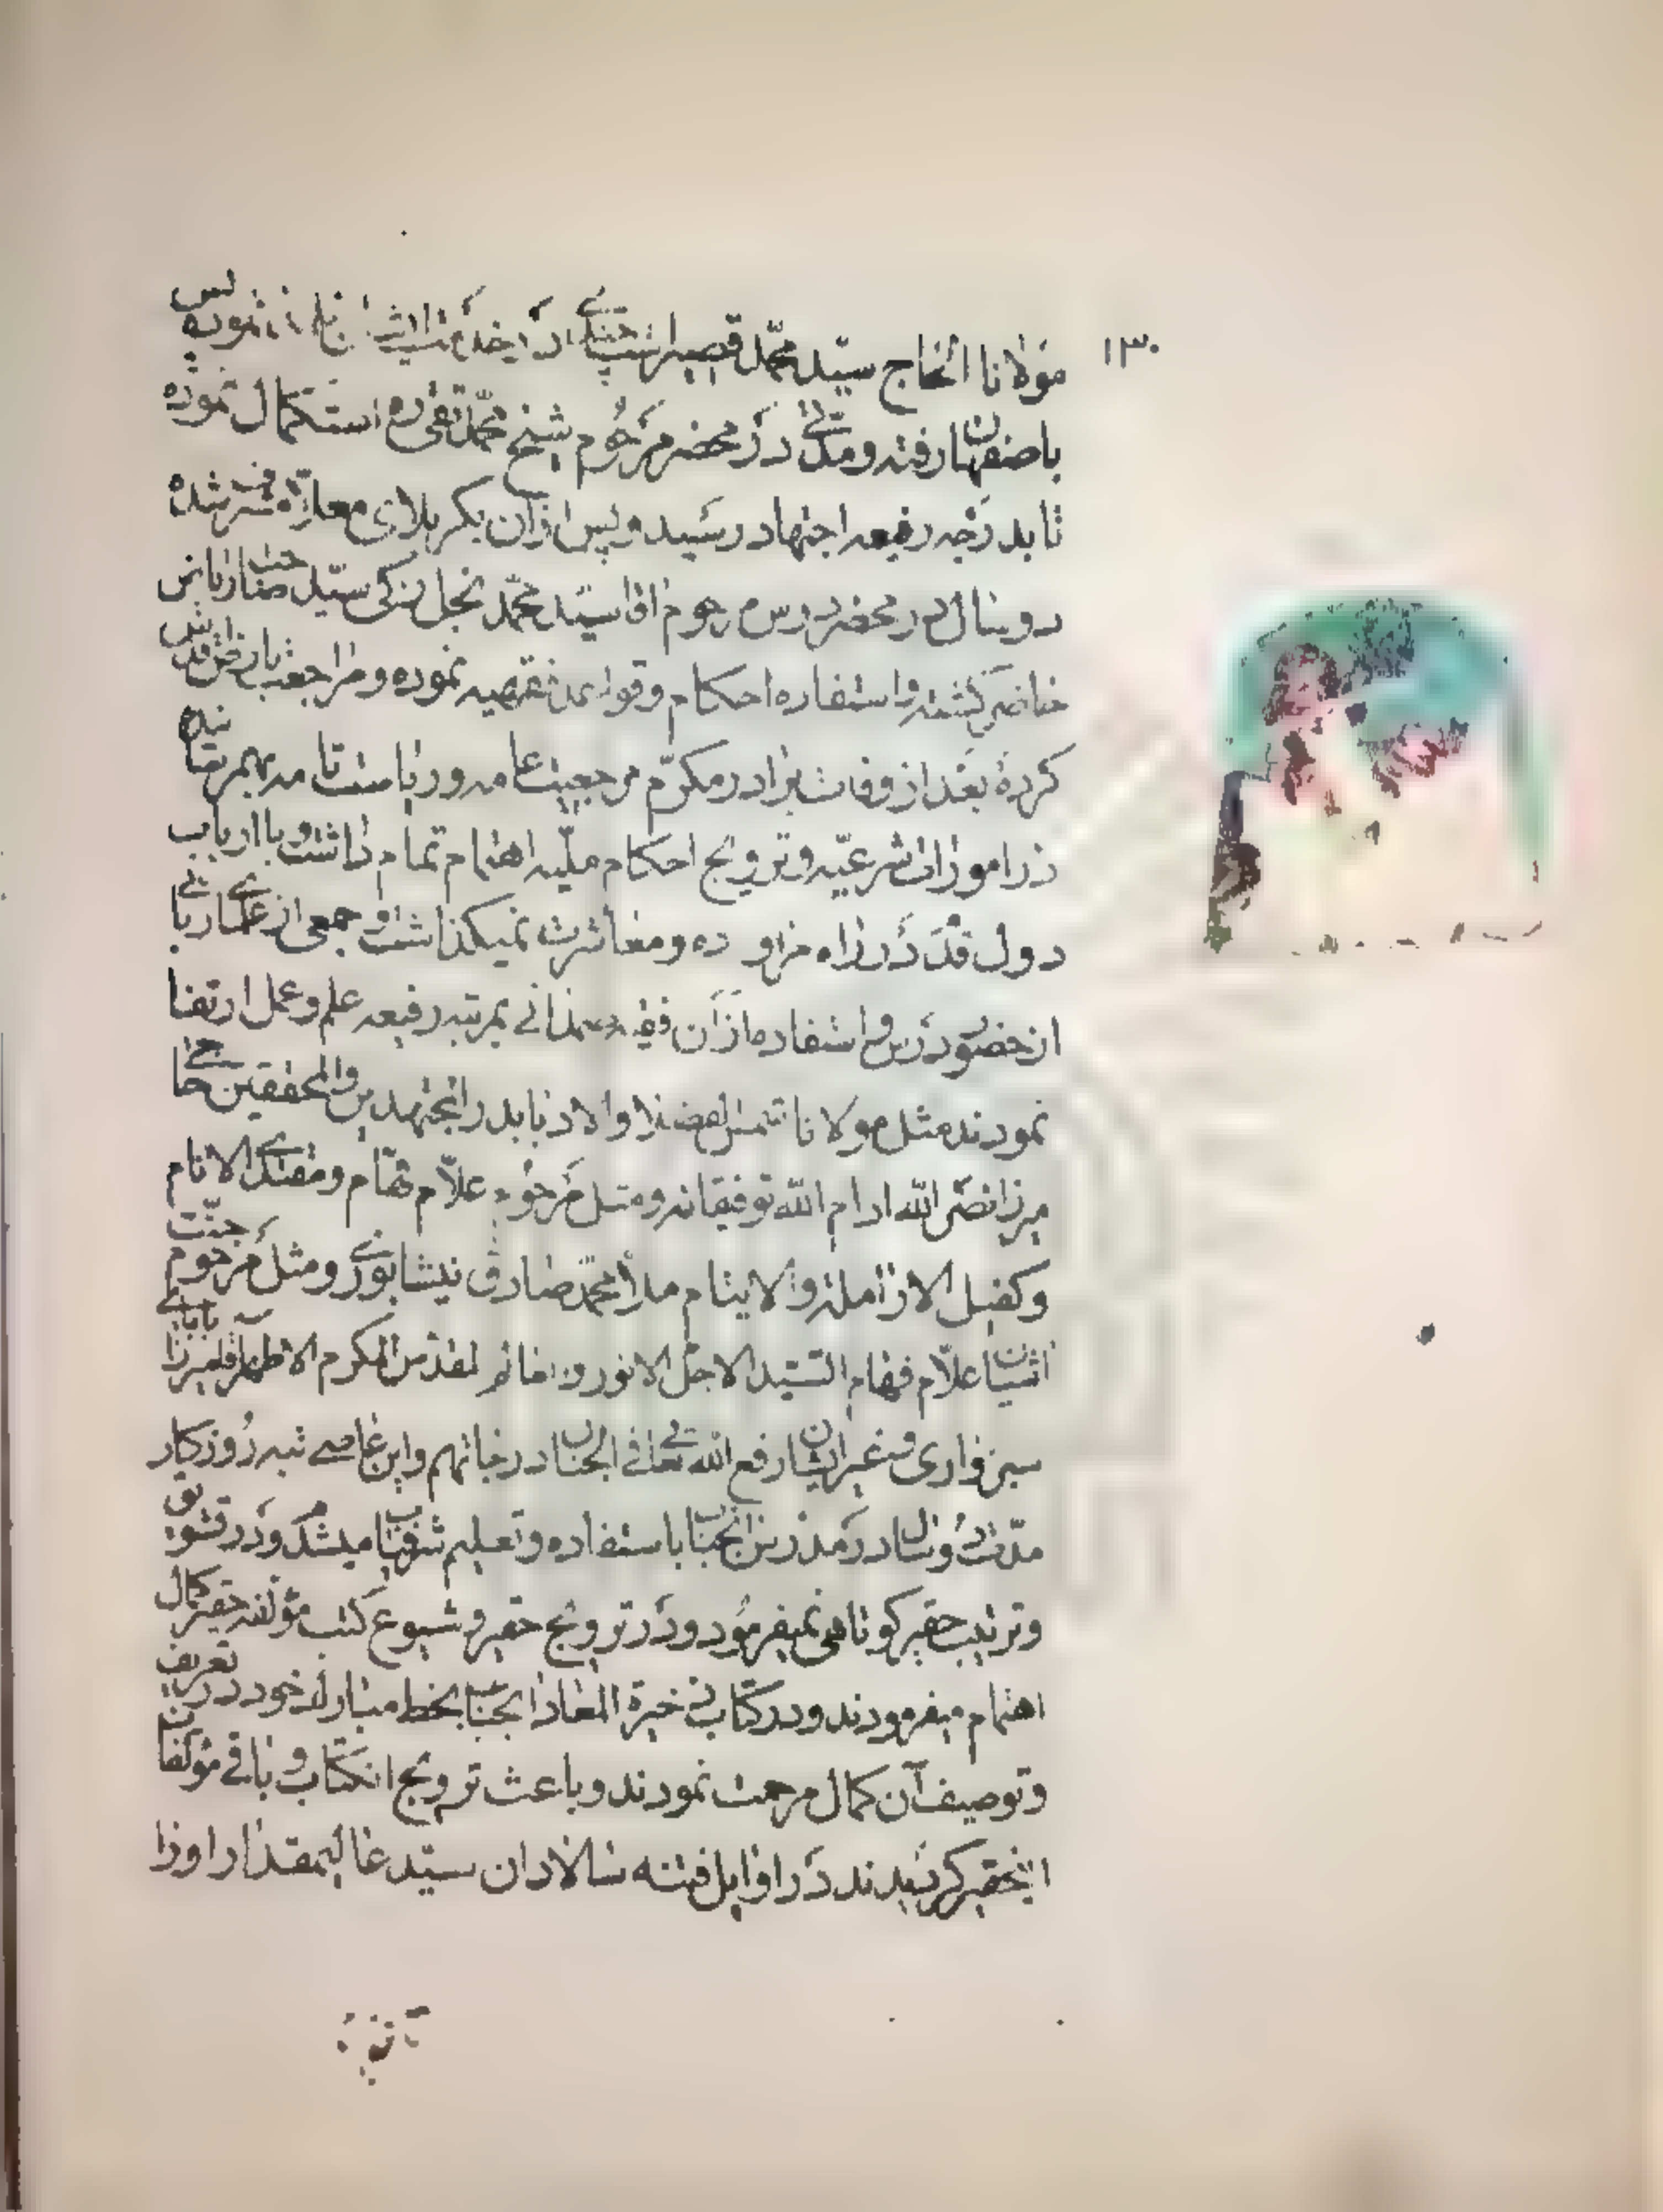 ۱۳۰
مولانا الحاج سید محمد قصیر است چندی در خدمت نموده پس
باصفهان رفته و مدتی در محضر مرحوم شیخ محمد تقی ره استکمال نموده
تا بدرجه رفیعه اجتهاد رسید و پس از آن بکربلای معلا مشرف شده
دو سال در محضر درس مرحوم اقا سید محمد نجل زکی سید صاحب ریاض
حاضر گشته و استفاده احکام و قواعد فقهیه نموده و مراجعت بارض اقدس
کرده بعد از وفات برادر مکرم مرجعیت عامه و ریاست تامه بهمرسانیده
در امورات شرعیه و ترویج احکام ملیه اهتمام تمام داشت و با ارباب
دول قدم در راه مراوده و معاشرت نمیکذاشت و جمعی از علمای ربانی
از حضور درس و استفاده از آن فقیه صمدانی بمرتبه رفیعه علم و عمل ارتقا
نمودند مثل مولانا شمس الفضلا والاذنا بدر المجتهدین والمحققین حاجی
میرزا نصر الله ادام الله توفیقاته و مثل مرحوم علام تهام و مقتدی الانام
و کفیل الارامله والایتام ملا محمد صادق نیشابوری و مثل مرحوم جنت
اشیان علام فهام السید الاجل الانور و المقدس المکرم الاطهر اقا میرزا بابای
سبزواری و غیر ایشان رفع الله تعالی فی الجنان درجاتهم و این عاصی تبه روزکار
مدت دو سال در مدرس انجناب باستفاده و تعلیم شرفیاب میشد و در تشویق
و ترتیب حقیر کوتاهی نمیفرمود و در ترویج حقیر و شیوع کتب مؤلفه حقیر کمال
اهتمام میفرمودند و در کتاب ذخیرة المعاد انجناب بخط مبارک خود در تعریف
و توصیف آن کمال مرحمت نمودند و باعث ترویج انکتاب و باقی مؤلفات
اینحقیر کردیدند در اوایل فتنه سالاران سید عالیمقدار او را